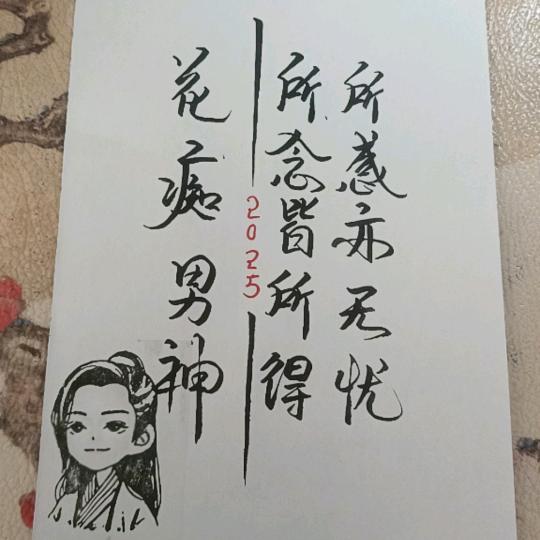 所惑亦无忧
所念皆所得
2025
花痴男神